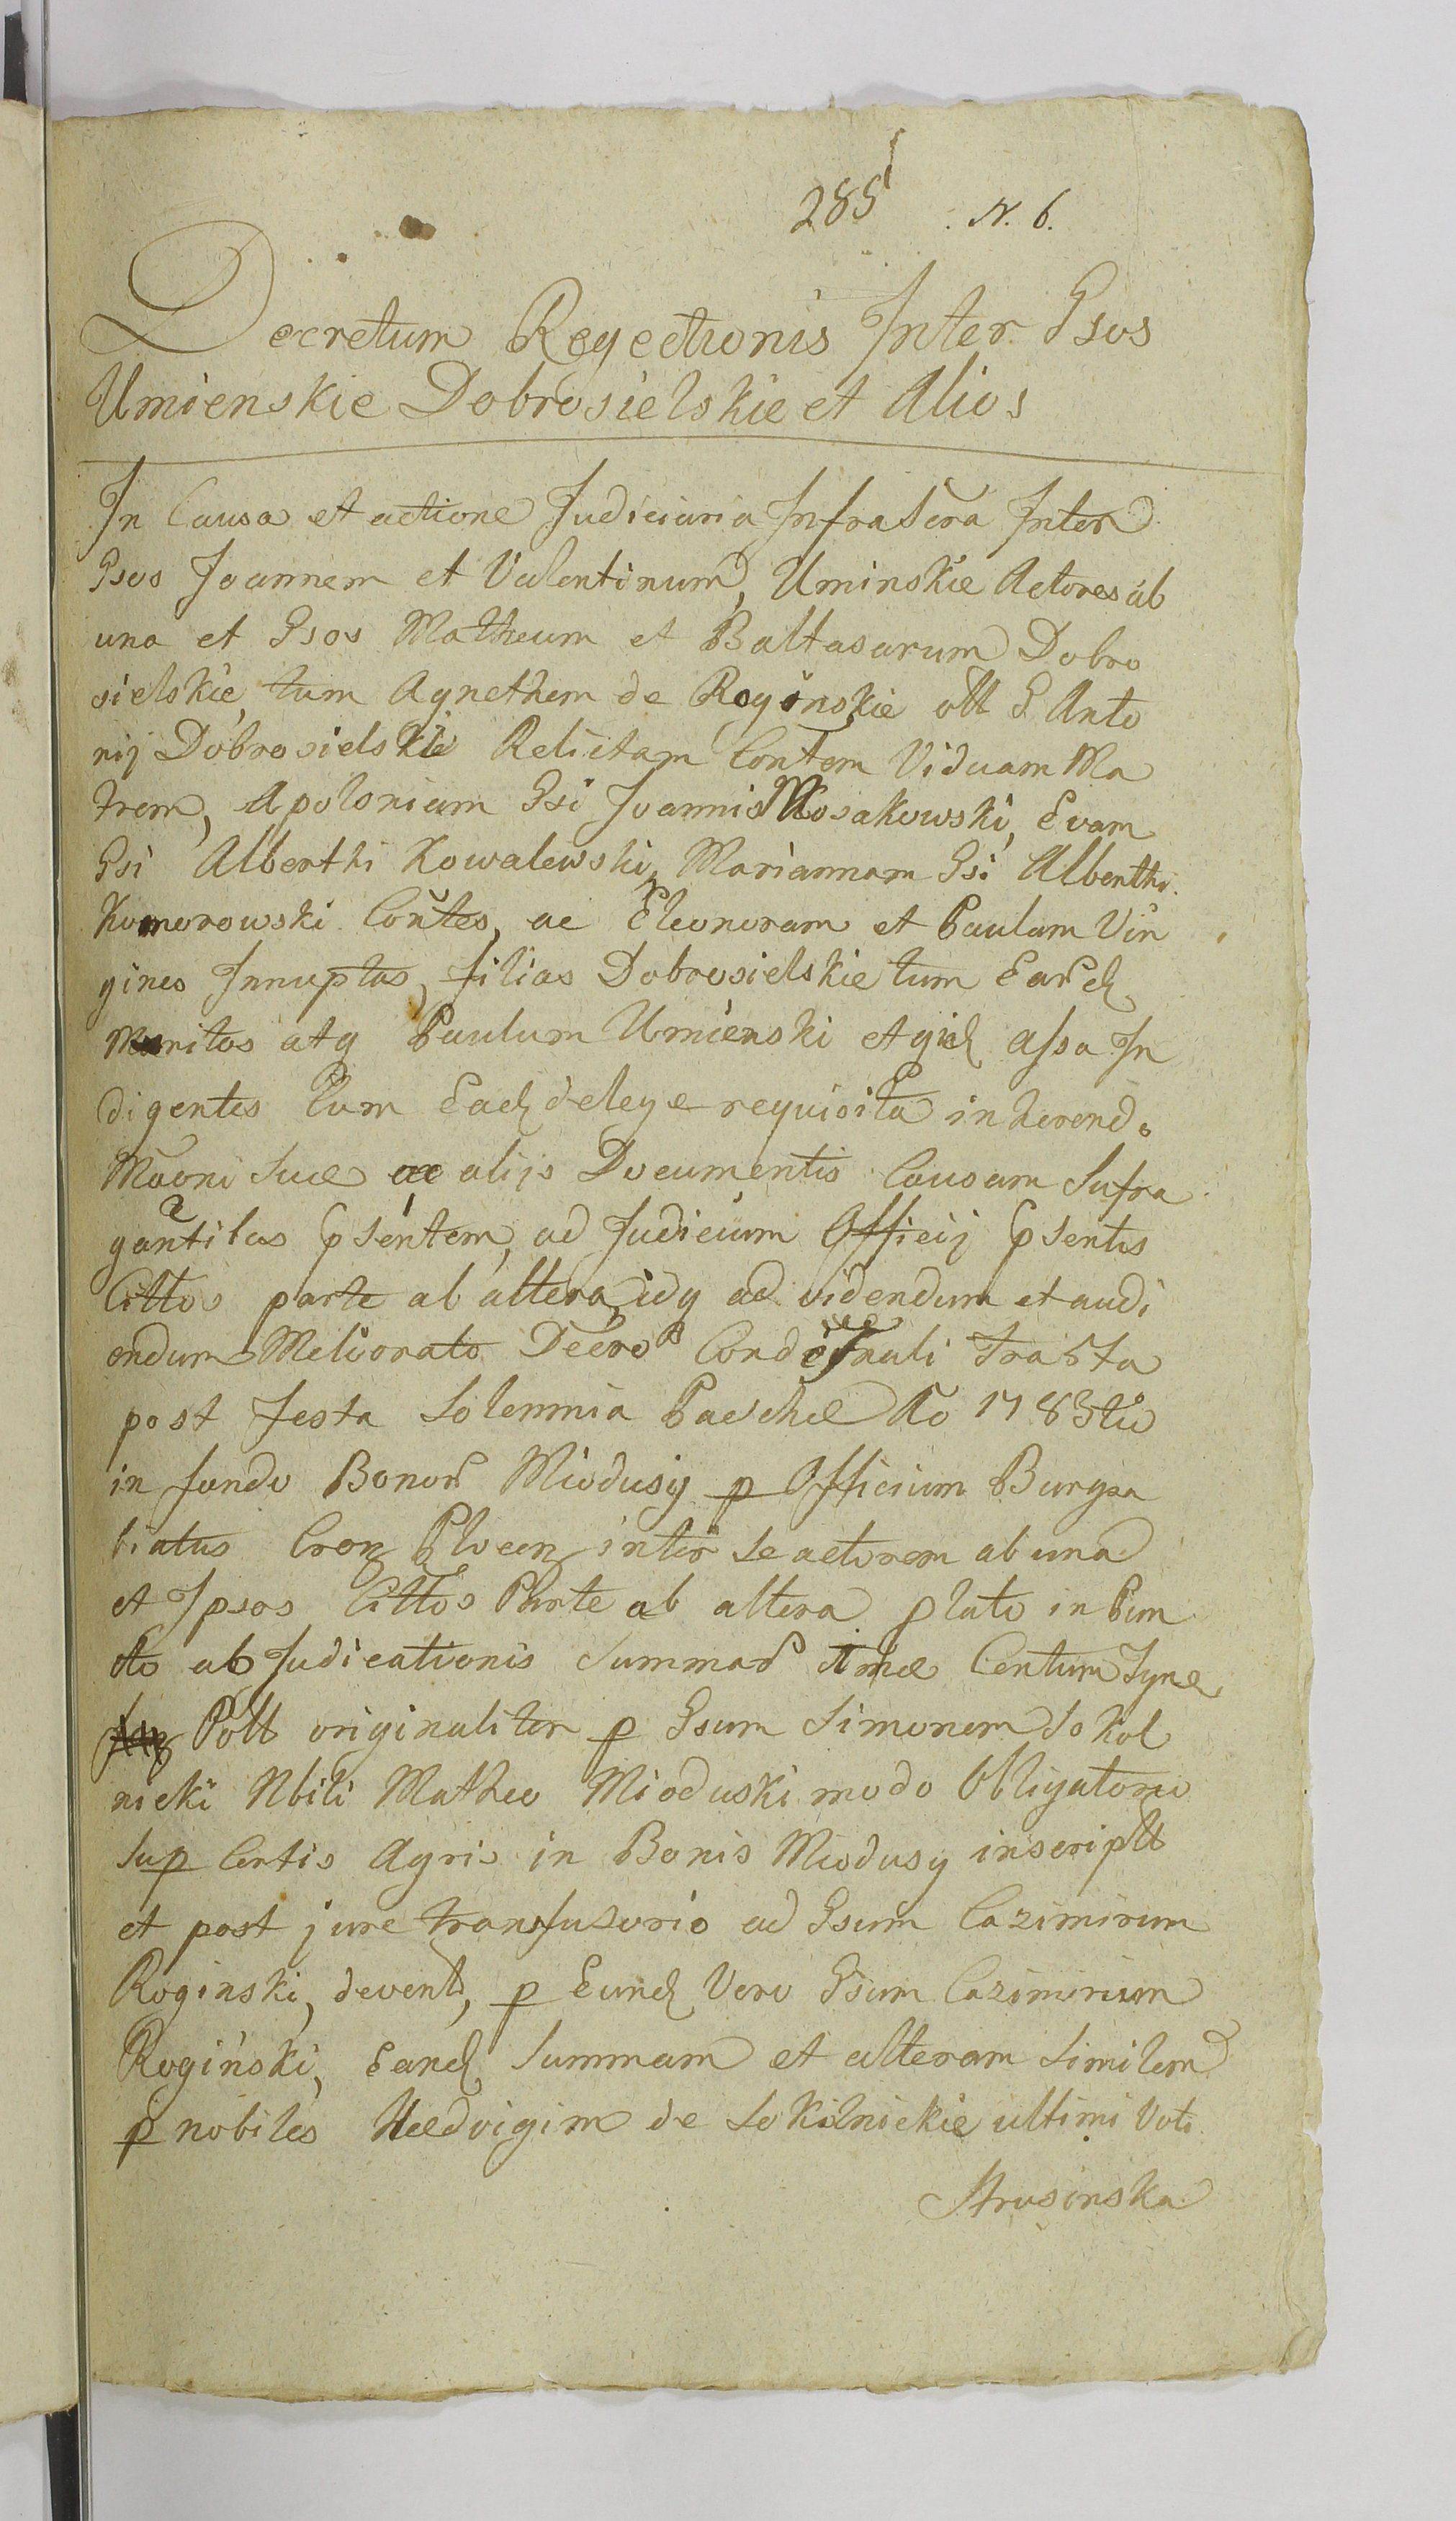 285 N. 6.
Decretum Regectionis Inter Gsos
Umienskie Dobrosielskie et Alios
In Causa et actione Judiciaria Infrascra Inter
Gsos Joannem et Valentinum, Uminskie Actores ab
una et Gsos Matheum et Baltasarum Dobro
sielskie, tum Agnethem de Roginskie olt G Anto
nij Dobrosielskie Relictam Contem Viduam Ma
trem, Apoloniam Gsi Joannis Mosakowski, Evam
Gsi Alberthi Kowalewski, Mariannam Gsi Alberthi
Komorowski Contes, ac Eleonoram et Paulam Vir
gines Innuptas, filias Dobrosielskie tum Eard
Maritos atq Paulum Umienski et assa In
digentes Cum Ead de lege requisita inherendo
Maoni suæ ac alijs Documentis Causam Sufra
gantibus psentem, ad Judicium Officij psentis
Cittos parte ab altera, idq ad videndum et audi
endum Meliorato Decro Condemnali
post festa Solemnia Paschæ Ao 1783tio
in fundo Bonor Miodusy p Officium Burgra
biatus Cron Plocen inter se actorem ab una
et Ipsos Cittos Parte ab altera plato in Pun
cto abjudicationis Summar Centum Tyne
Poll originaliter p Gsum Simonem Sokol
nicki Nbili Matheo Mioduski modo Obligatorio
sup Certis Agris in Bonis Miodusy inscriptt
et post jure transfusorio ad Gsum Cazimirum
Roginski, devent, p Eund Vero Gsum Cazimirum
Roginski, Eand Summam et alteram similem
p nobiles Hedvigim de Sokolnickie ultimi Voti
Strusinska